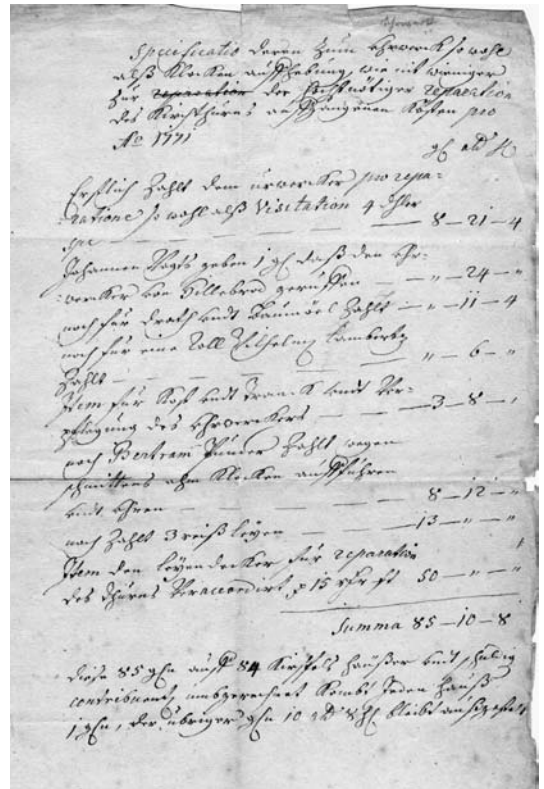 Specificatio deren zum Uhrwerck so wohl
alß Klocken auffhebung, wie nit weniger
zur reparation der höchstnötiger reparation
des Kirchthurns außgangenen Kösten pro
Ao 1771
gl alb
Erstlich Zahlt dem urwercker pro repa-
ratione so wohl alß Visitation 4 dhlr
spe — 8 – 21 – 4
Johannen Vogts geben 1 gl daß den Uhr-
wercker von Hillebred geruffen — „ – 24 – „
noch für Drath undt Baumöel Zahlt – „ – 11 – 4
noch für eine Koll Wilhelm Lambertz
Zahlt — „ – 6 – „
Item für Kost undt Tranck undt Ver-
pflegung des Uhrwerckers — 3 – 8 – „
noch Bertram Zahlt wegen
ahm Klocken
undt Uhren — 8 – 12 – „
noch Zahlt 3 reiß leyen — 13 – „ – „
Item den leyendecker für reparation
des Thurns veraccordirt p 15 50 – „ – „
Summa 85 – 10 – 8
diese 85 gln auff 84 Kirspels Haußer undt schuldig
contribuent, umbgerechnet Kombt Jeden Hauß
1 gln, der übriger gln 10 alb 8 bleibt